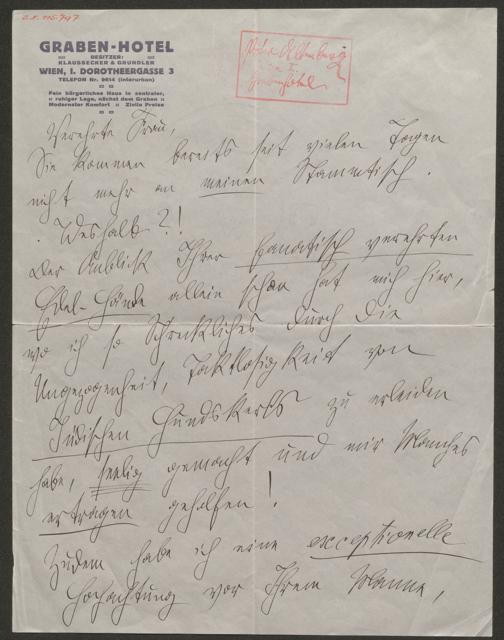 I.N. 115.797
GRABEN-HOTEL
BESITZER:
KLAUSSECKER & GRUNDLER
WIEN, I. DOROTHEERGASSE 3
TELEFON Nr. 9614 (interurban)
Fein bürgerliches Haus in zentraler,
ruhiger Lage, nächst dem Graben
Modernster Komfort Zivile Preise
Peter Altenberg
Wien I
Grabenhotel
Verehrte Frau,
Sie kommen bereits seit vielen Tagen
nicht mehr an meinen Stammtisch.
Weshalb?!
Der Anblick Ihrer fanatisch verehrten
Edel-Hände allein schon hat mich hier,
wo ich so Schreckliches durch die
Ungezogenheit, Taktlosigkeit von
Jüdischen Hundskerls zu erleiden
habe, seelig gemacht und mir Manches
ertragen geholfen!
Zudem habe ich eine exceptionelle
Hochachtung vor Ihrem Manne,